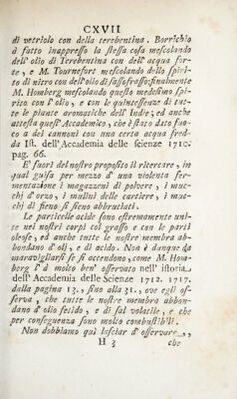 CXVII
di vetriolo con della terebentina. Borrichio
è fatto inappresso la stessa cosa mescolando
dell' olio di Terebentina con dell' acqua for-
te, e M. Tournefort mescolando dello spiri-
to di nitro con dell'olio di sassofrasso; finalmente
M. Homberg mescolando questo medesimo spi-
rito con l' olio, e con le quintessenze di tut-
te le piante aromatiche dell' Indie; ed anche
attesta quest' Accademico, che è stato dato fuo-
co a dei cannoni con una certa acqua fred-
da Ist. dell' Accademia delle scienze 1710.
pag. 66.
E' fuori del nostro proposito il ricercare, in
qual guisa per mezzo d' una violenta fer-
mentazione i magazzeni di polvere, i muc-
chj d'orzo, i mulini delle cartiere, i muc-
chj di fieno si sieno abbruciati.
Le particelle acide sono estremamente uni-
te nei nostri corpi col grasso e con le parti
oleose, ed anche tutte le nostre membra ab-
bondano d' olj, e di acido. Non è dunque da
maravigliarsi se si accendono, come M. Hom-
berg l' à molto ben' osservato nell' istoria
dell' Accademia delle Scienze 1712. 1717.
dalla pagina 13., fino alla 31., ove egli os-
serva, che tutte le nostre membra abbon-
dano d' olio fetido, e di sal volatile, e che
per conseguenza sono molto combustibili.
Non dobbiamo quì lasciar d' osservare,
H 3 che